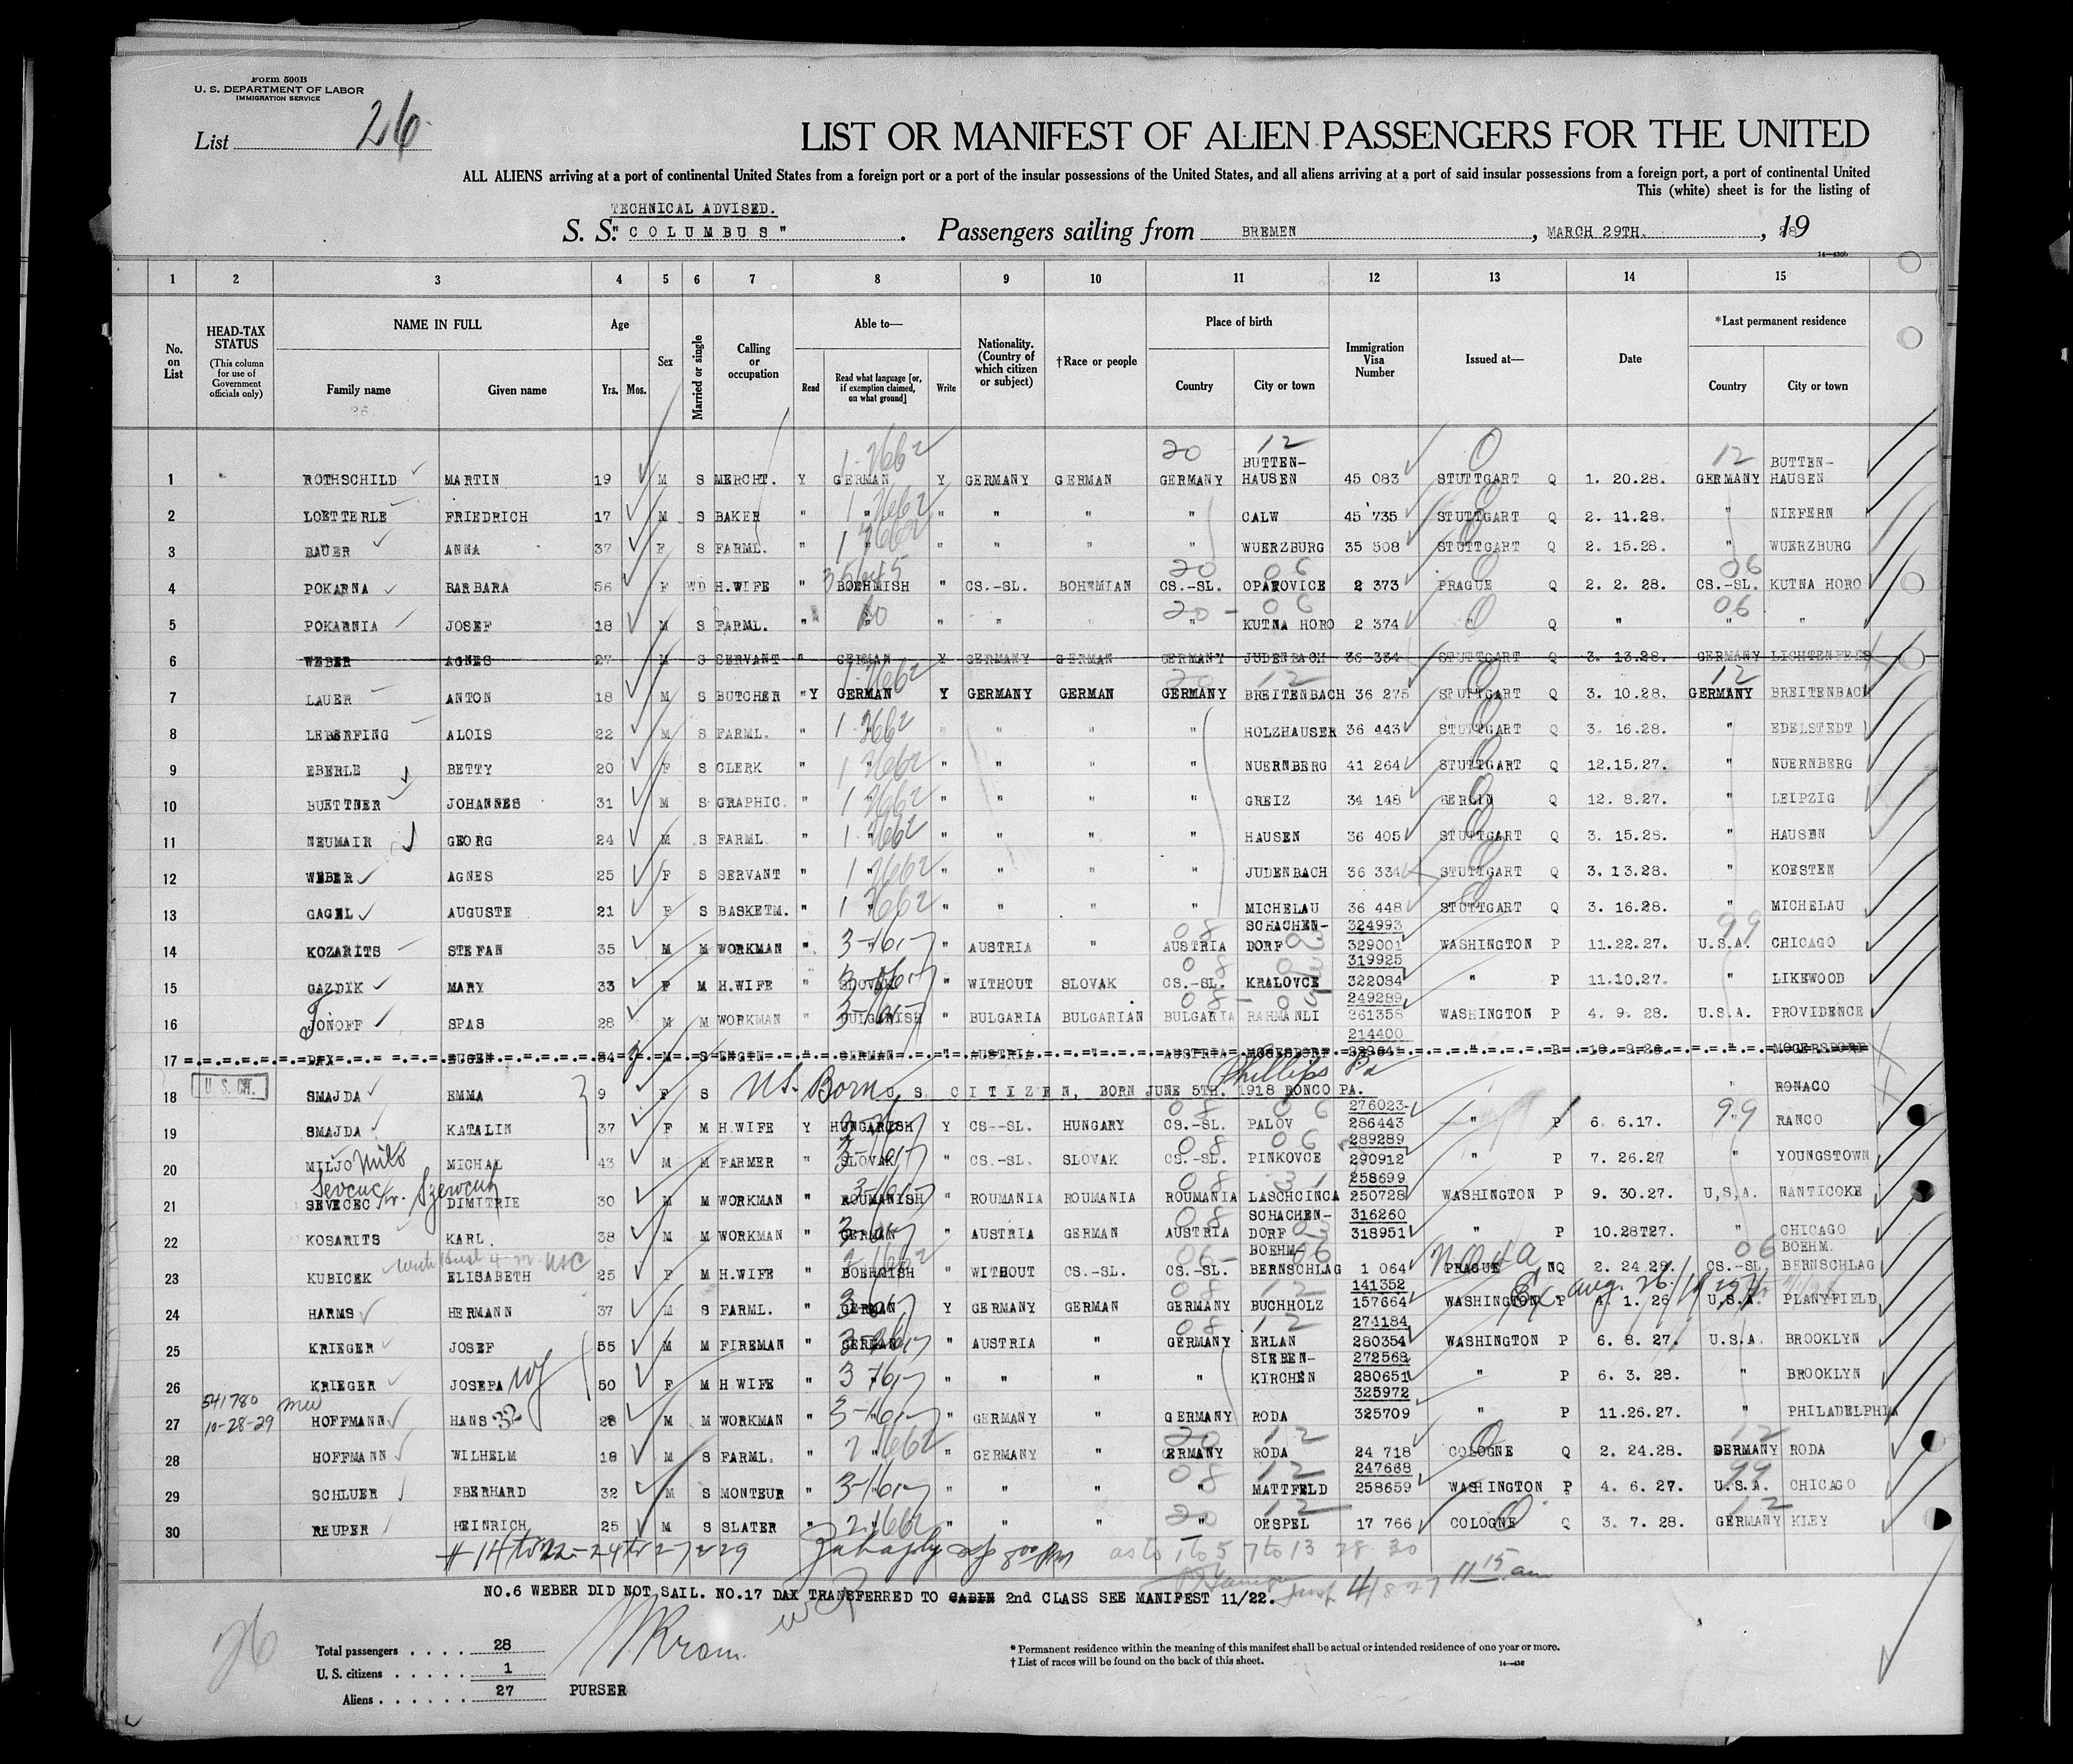 Form 500B
U. S. DEPARTMENT OF LABOR
IMMIGRATION SERVICE
List 26
LIST OR MANIFEST OF ALIEN PASSENGERS FOR THE UNITED
ALL ALIENS arriving at a port of continental United States from a foreign port or a port of the insular possessions of the United States, and all aliens arriving at a port of said insular possessions from a foreign port, a port of continental United
This (white) sheet is for the listing of
TECHNICAL ADVISED.
S. S. "COLUMBUS" Passengers sailing from BREMEN, MARCH 29TH., 1928
14—430b
1 2 3 4 5 6 7 8 9 10 11 12 13 14 15
No. on List
HEAD-TAX STATUS (This column for use of Government officials only)
NAME IN FULL
Family name Given name
Age Yrs. Mos.
Sex
Married or single
Calling or occupation
Able to—
Read Read what language [or, if exemption claimed, on what ground] Write
Nationality. (Country of which citizen or subject)
†Race or people
Place of birth
Country City or town
Immigration Visa Number
Issued at—
Date
*Last permanent residence
Country City or town
1 ROTHSCHILD MARTIN 19 M S MERCHT. Y GERMAN Y GERMANY GERMAN GERMANY BUTTEN-HAUSEN 45 083 STUTTGART Q 1. 20.28. GERMANY BUTTEN-HAUSEN
2 LOETTERLE FRIEDRICH 17 M S BAKER " " " " " " CALW 45 735 STUTTGART Q 2. 11.28. " NIEFERN
3 BAUER ANNA 37 F S FARML. " " " " " " WUERZBURG 35 508 STUTTGART Q 2. 15.28. " WUERZBURG
4 POKARNA BARBARA 56 F WD H.WIFE " BOEHMISH " CS.-SL. BOHEMIAN CS.-SL. OPATOVICE 2 373 PRAGUE Q 2. 2. 28. CS.-SL. KUTNA HORO
5 POKARNIA JOSEF 18 M S FARML. " " " " " " KUTNA HORO 2 374 " Q " " "
6 WEBER AGNES 27 M S SERVANT " GERMAN Y GERMANY GERMAN GERMANY JUDENBACH 36 334 STUTTGART Q 3. 13.28. GERMANY LICHTENFELS
7 LAUER ANTON 18 M S BUTCHER "Y GERMAN Y GERMANY GERMAN GERMANY BREITENBACH 36 275 STUTTGART Q 3. 10.28. GERMANY BREITENBACH
8 LEBERFING ALOIS 22 M S FARML. " " " " " " HOLZHAUSER 36 443 STUTTGART Q 3. 16.28. " EDELSTEDT
9 EBERLE BETTY 20 F S CLERK " " " " " " NUERNBERG 41 264 STUTTGART Q 12.15.27. " NUERNBERG
10 BUETTNER JOHANNES 31 M S GRAPHIC. " " " " " " GREIZ 34 148 BERLIN Q 12. 8.27. " LEIPZIG
11 NEUMAIR GEORG 24 M S FARML " " " " " " HAUSEN 36 405 STUTTGART Q 3. 15.28. " HAUSEN
12 WEBER AGNES 25 F S SERVANT " " " " " " JUDENBACH 36 334 STUTTGART Q 3. 13.28. " KOESTEN
13 GAGEL AUGUSTE 21 F S BASKETM. " " " " " " MICHELAU 36 448 STUTTGART Q 3. 16.28. " MICHELAU
14 KOZARITS STEFAN 35 M M WORKMAN " " AUSTRIA " AUSTRIA SCHACHEN-DORF 324993 329001 WASHINGTON P 11.22.27. U.S.A. CHICAGO
15 GAZDIK MARY 33 F M H.WIFE " SLOVAK " WITHOUT SLOVAK CS.-SL. KRALOVCE 319925 322084 " P 11.10.27. " LIKEWOOD
16 TONOFF SPAS 28 M M WORKMAN " BULGARISH " BULGARIA BULGARIAN BULGARIA RAHMANLI 249289 261358 WASHINGTON P 4. 9. 28. U.S.A. PROVIDENCE
17 DAX EUGEN 34 M S ENGIN " GERMAN " AUSTRIA " AUSTRIA MOGESDORF 214400 " MOGERSDORF
U. S. CIT.
18 SMAJDA EMMA 9 F S US. Born U S CITIZEN, BORN JUNE 5TH. 1918 RONCO PA. Phillips Pa " RONACO
19 SMAJDA KATALIN 37 F M H.WIFE Y HUNGARISH Y CS--SL. HUNGARY CS.-SL. PALOV 276023 286443 " P 6. 6.17. " RANCO
20 MILJO MICHAL 43 M M FARMER " SLOVAK " CS.-SL. SLOVAK CS.-SL. PINKOVCE 289289 290912 " P 7. 26.27 " YOUNGSTOWN
21 SEVECEC DIMITRIE 30 M M WORKMAN " ROUMANISH " ROUMANIA ROUMANIA ROUMANIA LASCHCINCA 258699 250728 WASHINGTON P 9. 30.27. U,S,A. NANTICOKE
22 KOSARITS KARL. 38 M M WORKMAN " GERMAN " AUSTRIA GERMAN AUSTRIA SCHACHEN-DORF 316260 318951 " P 10.28T27. " CHICAGO
23 KUBICEK ELISABETH 25 F M H.WIFE " BOEHMISH " WITHOUT CS.-SL. CS.-SL. BOEHM. BERNSCHLAG 1 064 PRAGUE NQ 2. 24.28. CS.-SL. BOEHM. BERNSCHLAG
24 HARMS HERMANN 37 M S FARML. " GERMAN Y GERMANY GERMAN GERMANY BUCHHOLZ 141352 157664 WASHINGTON P 4. 1. 26 U.S.A. PLANYFIELD
25 KRIEGER JOSEF 55 M M FIREMAN " GERMAN " AUSTRIA " GERMANY ERLAN 274184 280354 WASHINGTON P 6. 8. 27. U.S.A. BROOKLYN
26 KRIEGER JOSEFA 50 F M H WIFE " " " " " " SIEBEN-KIRCHEN 272568 280651 " P 6. 3. 28. " BROOKLYN
541780
10-28-29
27 HOFFMANN HANS 32 28 M M WORKMAN " " " GERMANY " GERMANY RODA 325972 325709 " P 11.26.27. " PHILADELPHIA
28 HOFFMANN WILHELM 18 M S FARML. " " " GERMANY " ERMANY RODA 24 718 COLOGNE Q 2. 24.28. GERMANY RODA
29 SCHLUER EBERHARD 32 M S MONTEUR " " " " " " MATTFELD 247668 258659 WASHINGTON P 4. 6. 27. U.S.A. CHICAGO
30 REUPER HEINRICH 25 M S SLATER " " " " " " OESPEL 17 766 COLOGNE Q 3. 7. 28. GERMANY KLEY
# 14 to 22 - 24 to 27 & 29
as to 1 to 5 7 to 13 28 30
NO.6 WEBER DID NOT SAIL. NO.17 DAX TRANSFERRED TO CABIN 2nd CLASS SEE MANIFEST 11/22.
11 15 am
26
Total passengers .... 28
U. S. citizens ..... 1
Aliens ...... 27
PURSER
* Permanent residence within the meaning of this manifest shall be actual or intended residence of one year or more.
† List of races will be found on the back of this sheet.
14—430